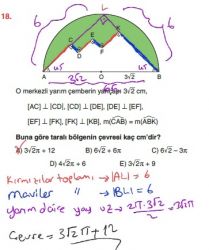 18.
L
6
6
45
45
A
3√2
O
3√2
B
6√2
O merkezli yarım çemberin yarıçapı 3√2 cm,
[AC] ⊥ [CD], [CD] ⊥ [DE], [DE] ⊥ [EF],
[EF] ⊥ [FK], [FK] ⊥ [KB], m(CAB) = m(ABK)
Buna göre taralı bölgenin çevresi kaç cm'dir?
A) 3√2π + 12 B) 6√2π + 6 C) 6√2 – 3π
D) 4√2π + 6 E) 3√2π + 9
Kırmızılar toplamı → |AL| = 6
maviler " → |BL| = 6
yarım daire yay uz → 2π.3√2/2 = 3√2π
Çevre = 3√2π + 12